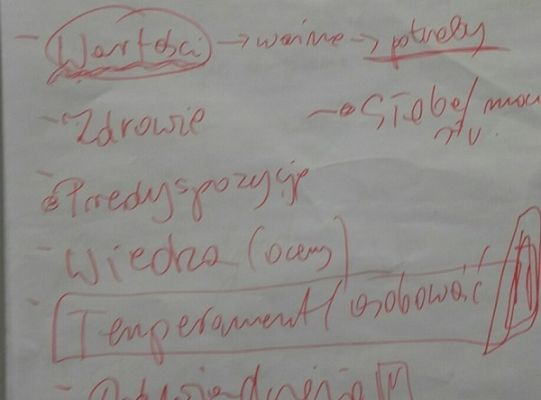 - Wartości → ważne → potrzeby
- Zdrowie → Słabe/mocn
- Predyspozycje
- Wiedza (oceny)
- Temperament / osobowość
- Doświadczenia